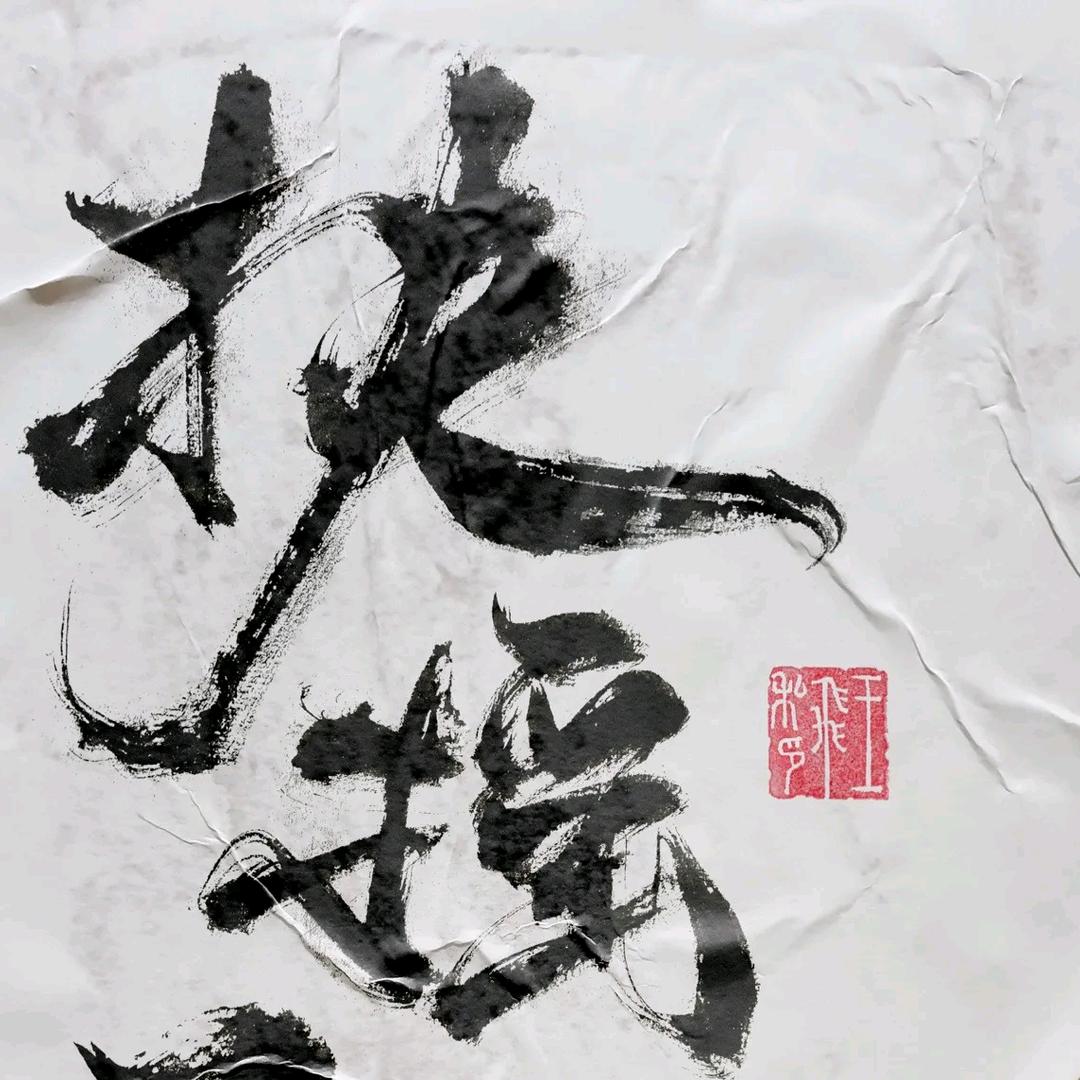 扶
摇
王飛私印